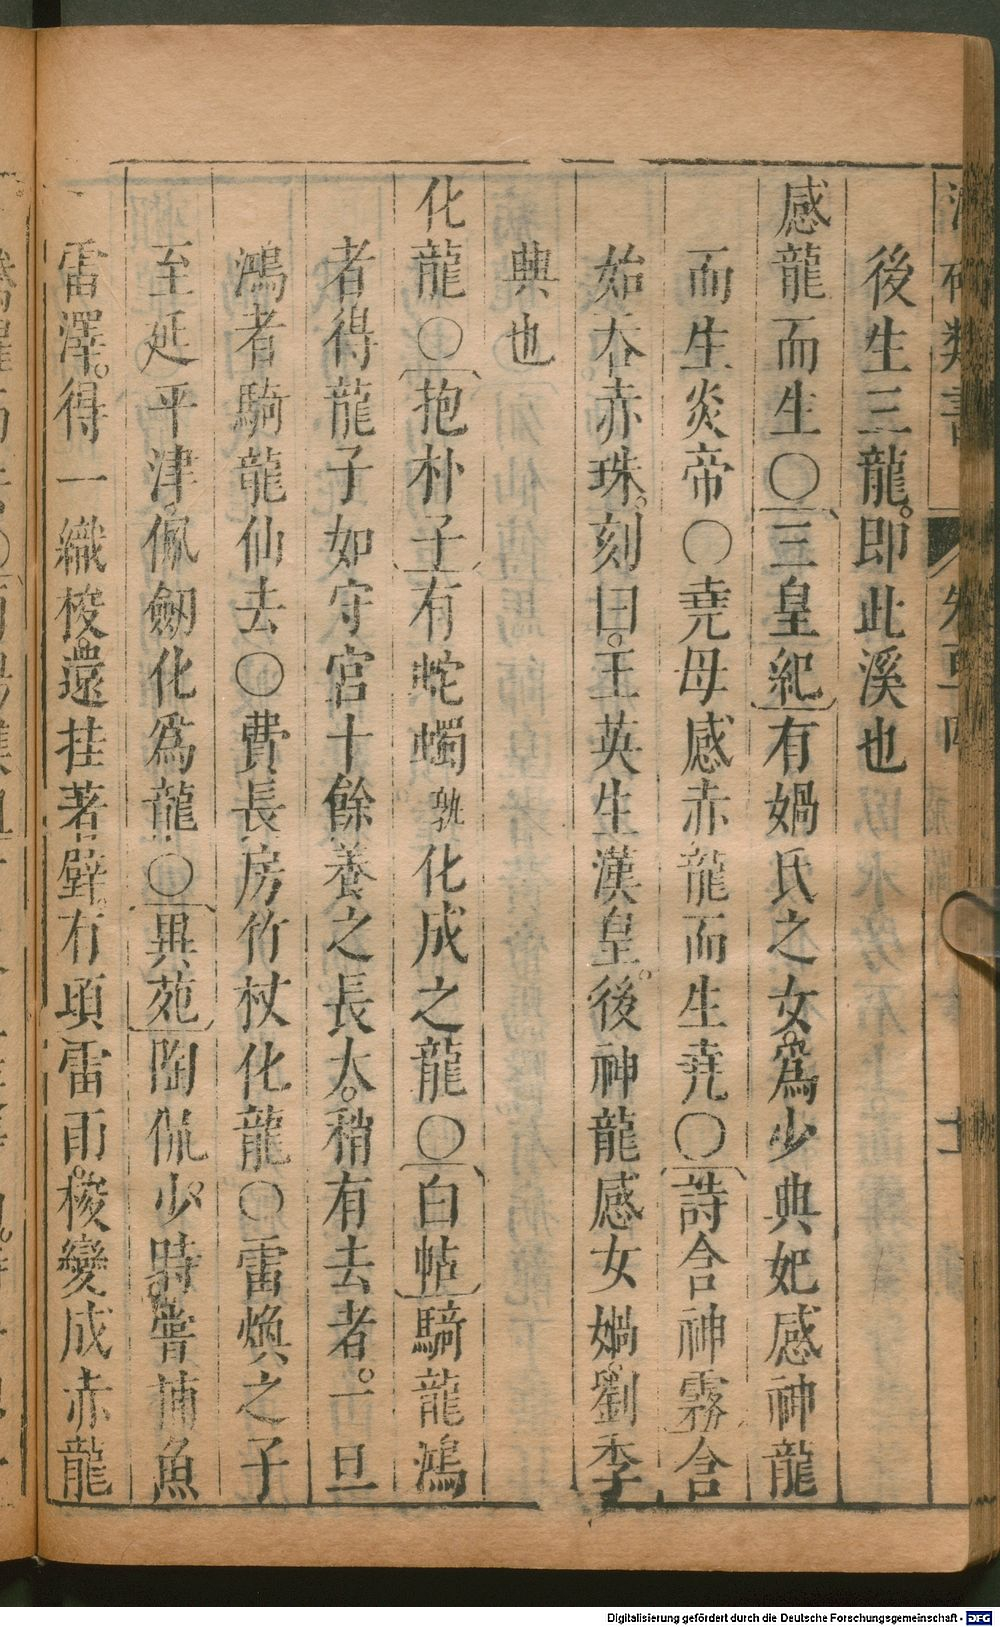 後生三龍。即此溪也
感龍而生〇三皇紀有媧氏之女。爲少典妃感神龍
而生炎帝〇堯母感赤龍而生堯〇詩含神霧含
始吞赤珠。刻曰。王英生漢皇。後神龍感女媧。劉季
興也
化龍〇抱朴子有蛇蠋孰化成之龍〇白帖騎龍鴻
者得龍子如守宮十餘養之長大。稍有去者。一旦
鴻者騎龍仙去〇費長房竹杖化龍〇雷煥之子
至延平津。佩劒化爲龍〇異苑陶侃少。時嘗捕魚
雷澤。得一織梭。還挂著壁。有頃雷雨。梭變成赤龍
Digitalisierung gefördert durch die Deutsche Forschungsgemeinschaft - DFG